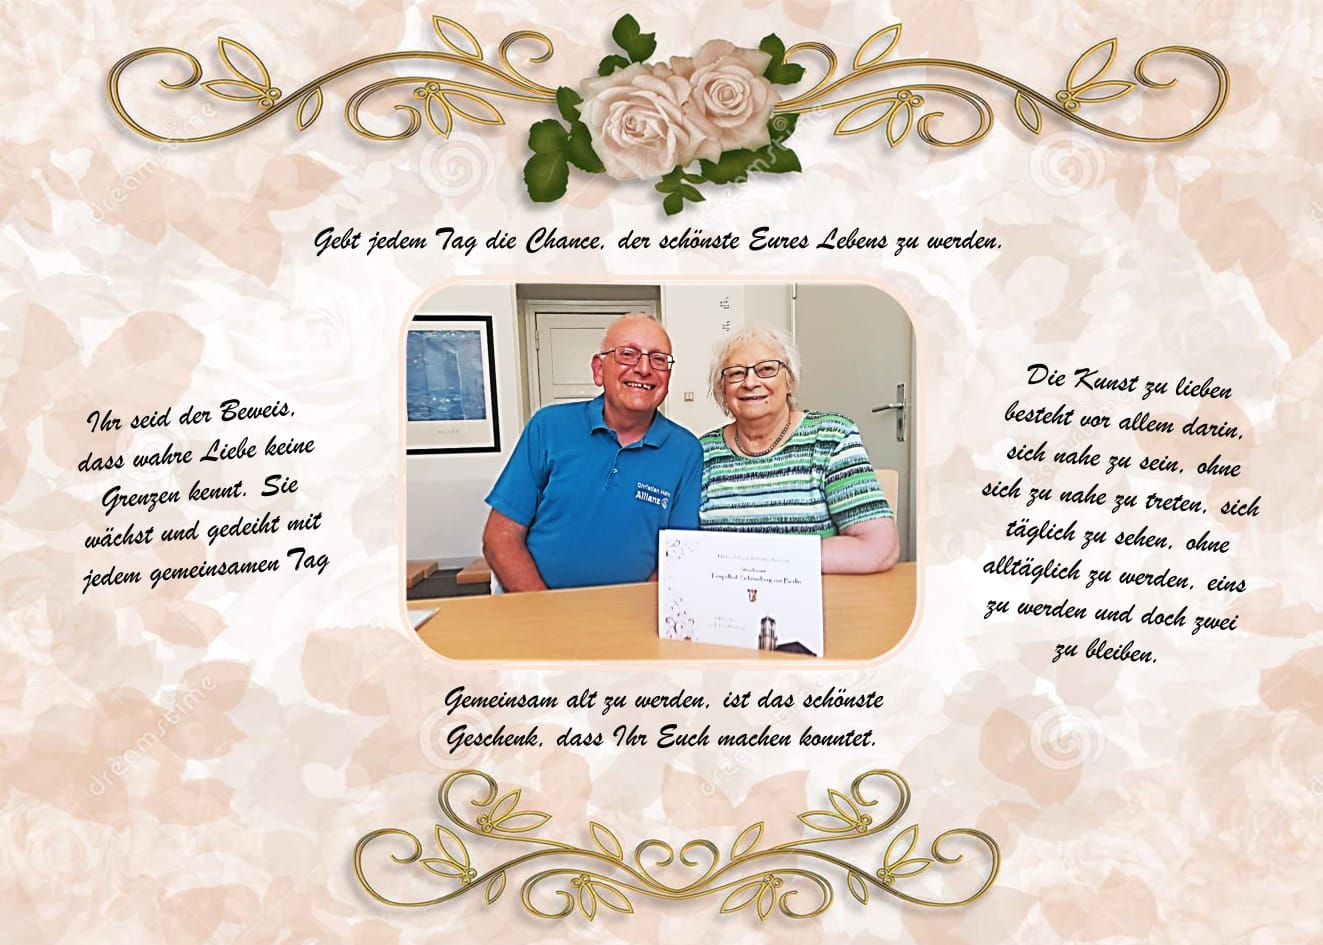 Gebt jedem Tag die Chance, der schönste Eures Lebens zu werden.
Ihr seid der Beweis,
dass wahre Liebe keine
Grenzen kennt. Sie
wächst und gedeiht mit
jedem gemeinsamen Tag
Die Kunst zu lieben
besteht vor allem darin,
sich nahe zu sein, ohne
sich zu nahe zu treten, sich
täglich zu sehen, ohne
alltäglich zu werden, eins
zu werden und doch zwei
zu bleiben.
Christian
Allianz
Standesamt
Tempelhof-Schöneberg von Berlin
Gemeinsam alt zu werden, ist das schönste
Geschenk, dass Ihr Euch machen konntet.
dreamstime
dreamstime
dreamstime
dreamstime